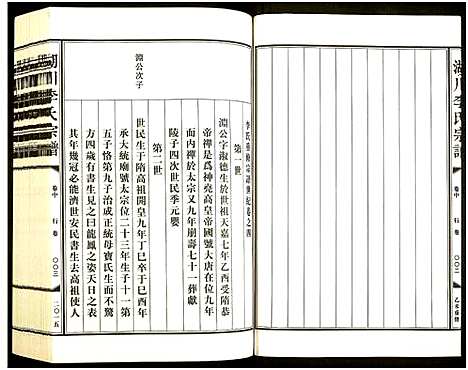 湖川李氏宗譜
卷中
行卷
〇〇三
乙未重修
李氏重修宗譜世紀卷之四
第一世
淵公字淑德生於世祖天嘉七年乙酉受隋恭
帝禪是為神堯高皇帝國號大唐在位九年
內禪於太宗又九年崩壽七十一葬獻
陵子四次世民季元嬰
第二世
淵公次子
世民生于隋高祖開皇九年丁巳卒于己酉年
承大統廟號太宗位二十三年生子十一第
五子恪第九子治成正統母竇氏生而不驚
方四歲有書生見之曰龍鳳之姿天日之表
其年幾冠必能濟世安民書生去高祖使人
湖川李氏宗譜
卷中
行卷
〇〇三
二〇一五